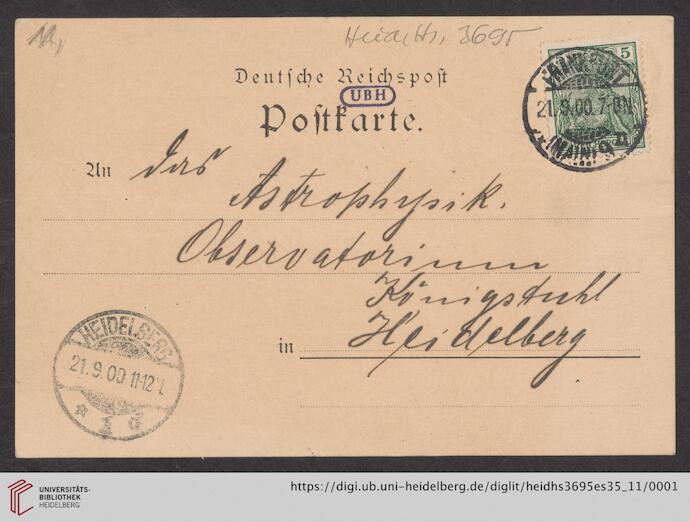 Heid. Hs. 3695
5
Deutsche Reichspost
UBH
Postkarte.
21.9.00.7-8N
(MAIN)
An das
Astrophysik.
Observatorium
Königstuhl
in Heidelberg
HEIDELBERG
21.9.00 11-12
* 1 d
UNIVERSITÄTS-
BIBLIOTHEK
HEIDELBERG
https://digi.ub.uni-heidelberg.de/diglit/heidhs3695es35_11/0001